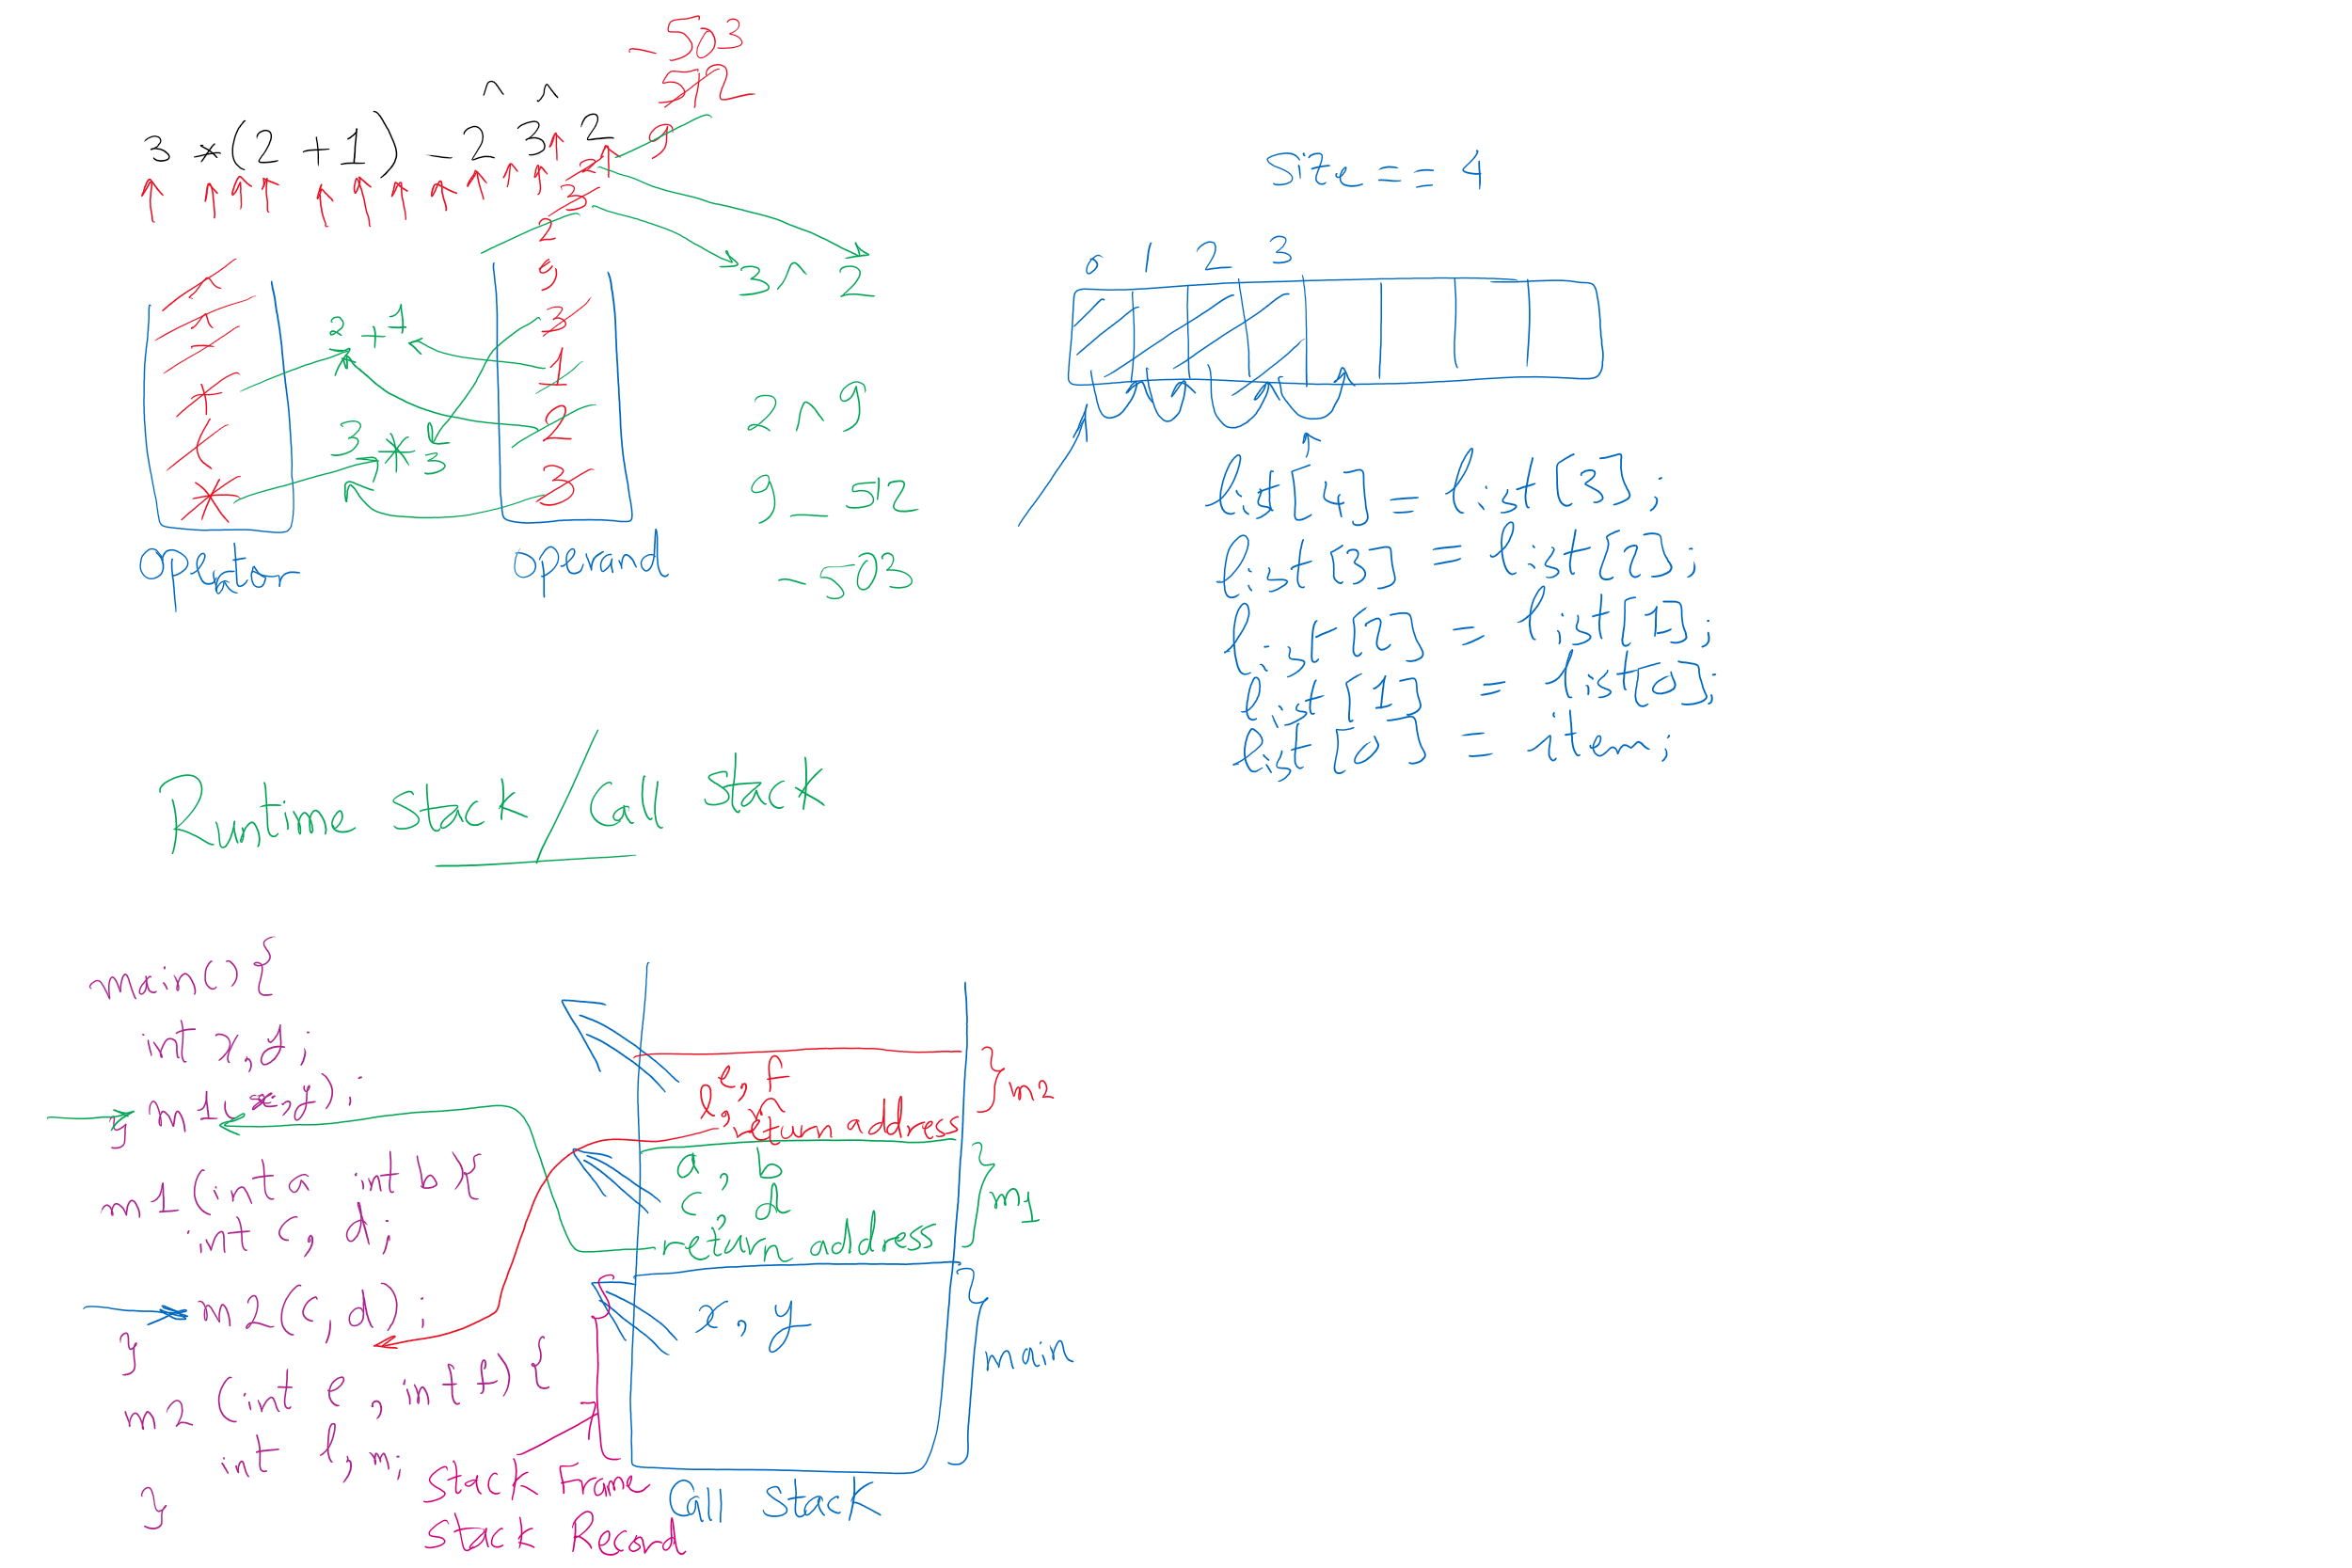 -503
512
^ ^
3 * (2 + 1) - 2 3 2 9
2
3
2
9
3
1
2
3
^
^
-
+
(
*
2 + 1
3 * 3
3 ^ 2
2 ^ 9
9 - 512
-503
operator
operand
Size == 4
0 1 2 3
list[4] = list[3];
list[3] = list[2];
list[2] = list[1];
list[1] = list[0];
list[0] = item;
Runtime Stack / Call Stack
main() {
int x, y;
m1(x, y);
}
m1 (int a int b) {
int c, d;
m2(c, d);
}
m2 (int e, int f) {
int l, m;
}
e, f
return address
m2
a, b
c, d
return address
m1
x, y
main
Stack Frame
Stack Record
Call Stack